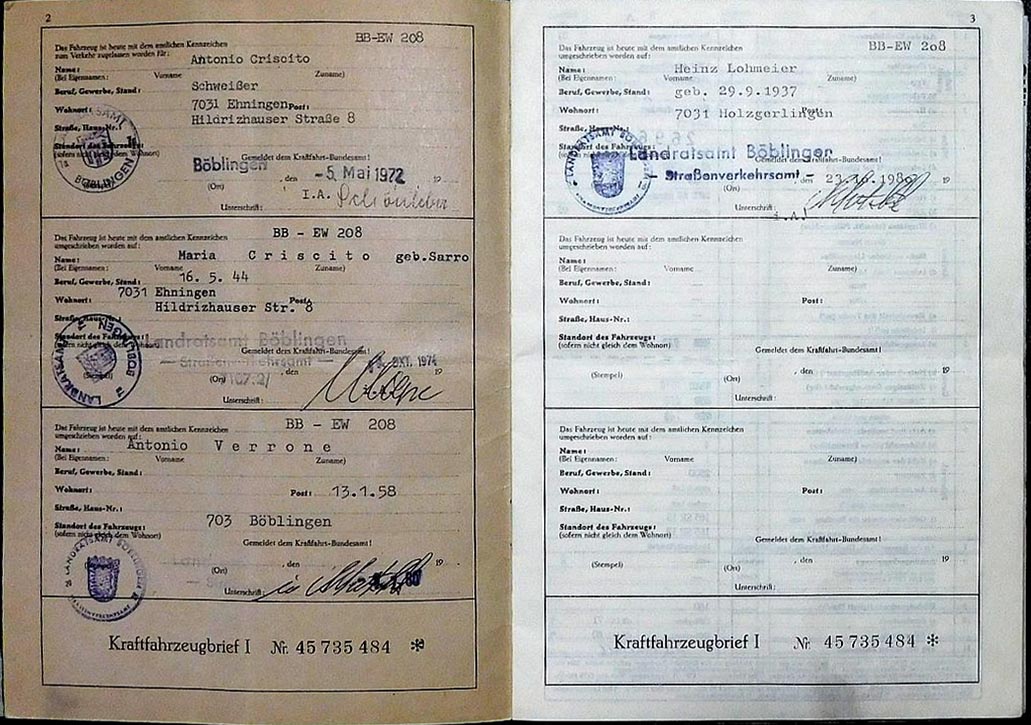 2
BB-EW 208
Das Fahrzeug ist heute mit dem amtlichen Kennzeichen
zum Verkehr zugelassen worden für:
Antonio Criscito
Name:
(Bei Eigennamen: Vorname Zuname)
Schweißer
Beruf, Gewerbe, Stand:
7031 Ehningen
Wohnort: Post:
Hildrizhauser Straße 8
Straße, Haus-Nr.:
Standort des Fahrzeugs:
(sofern nicht gleich dem Wohnort)
BÖBLINGEN
Gemeldet dem Kraftfahrt-Bundesamt!
Böblingen, den -5. Mai 1972 19
(Ort)
I.A.
Unterschrift:
Das Fahrzeug ist heute mit dem amtlichen Kennzeichen
BB - EW 208
umgeschrieben worden auf:
Name: Maria Criscito geb.Sarro
(Bei Eigennamen: Vorname Zuname)
16. 5. 44
Beruf, Gewerbe, Stand:
7031 Ehningen
Wohnort: Post:
Hildrizhauser Str. 8
Straße, Haus-Nr.:
Standort des Fahrzeugs:
(sofern nicht gleich dem Wohnort)
LANDRATSAMT BÖBLINGEN
(Stempel)
Landratsamt Böblingen
Gemeldet dem Kraftfahrt-Bundesamt!
— Straßenverkehrsamt —
, den OKT. 1974 19
(Ort)
Unterschrift:
BB - EW 208
Das Fahrzeug ist heute mit dem amtlichen Kennzeichen
umgeschrieben worden auf:
Antonio Verrone
Name:
(Bei Eigennamen: Vorname Zuname)
Beruf, Gewerbe, Stand:
Wohnort: Post: 13.1.58
Straße, Haus-Nr.:
703 Böblingen
Standort des Fahrzeugs:
(sofern nicht gleich dem Wohnort)
Gemeldet dem Kraftfahrt-Bundesamt!
LANDRATSAMT BÖBLINGEN
, den 80 19
(Ort)
Unterschrift:
Kraftfahrzeugbrief I Nr. 45 735 484 *
3
BB-EW 208
Das Fahrzeug ist heute mit dem amtlichen Kennzeichen
umgeschrieben worden auf:
Heinz Lohmeier
Name:
(Bei Eigennamen: Vorname Zuname)
Beruf, Gewerbe, Stand: geb. 29.9.1937
Wohnort: 7031 Holzgerlingen Post:
Straße, Haus-Nr.:
Standort des Fahrzeugs:
(sofern nicht gleich dem Wohnort)
LANDRATSAMT BÖBLINGEN
STRASSENVERKEHRSAMT
Landratsamt Böblingen
Gemeldet dem Kraftfahrt-Bundesamt!
- Straßenverkehrsamt -
19
(Ort)
Unterschrift:
Das Fahrzeug ist heute mit dem amtlichen Kennzeichen
umgeschrieben worden auf:
Name:
(Bei Eigennamen: Vorname Zuname)
Beruf, Gewerbe, Stand:
Wohnort: Post:
Straße, Haus-Nr.:
Standort des Fahrzeugs:
(sofern nicht gleich dem Wohnort)
Gemeldet dem Kraftfahrt-Bundesamt!
(Stempel) , den 19
(Ort)
Unterschrift:
Das Fahrzeug ist heute mit dem amtlichen Kennzeichen
umgeschrieben worden auf:
Name:
(Bei Eigennamen: Vorname Zuname)
Beruf, Gewerbe, Stand:
Wohnort: Post:
Straße, Haus-Nr.:
Standort des Fahrzeugs:
(sofern nicht gleich dem Wohnort)
Gemeldet dem Kraftfahrt-Bundesamt!
(Stempel) , den 19
(Ort)
Unterschrift:
Kraftfahrzeugbrief I Nr. 45 735 484 *